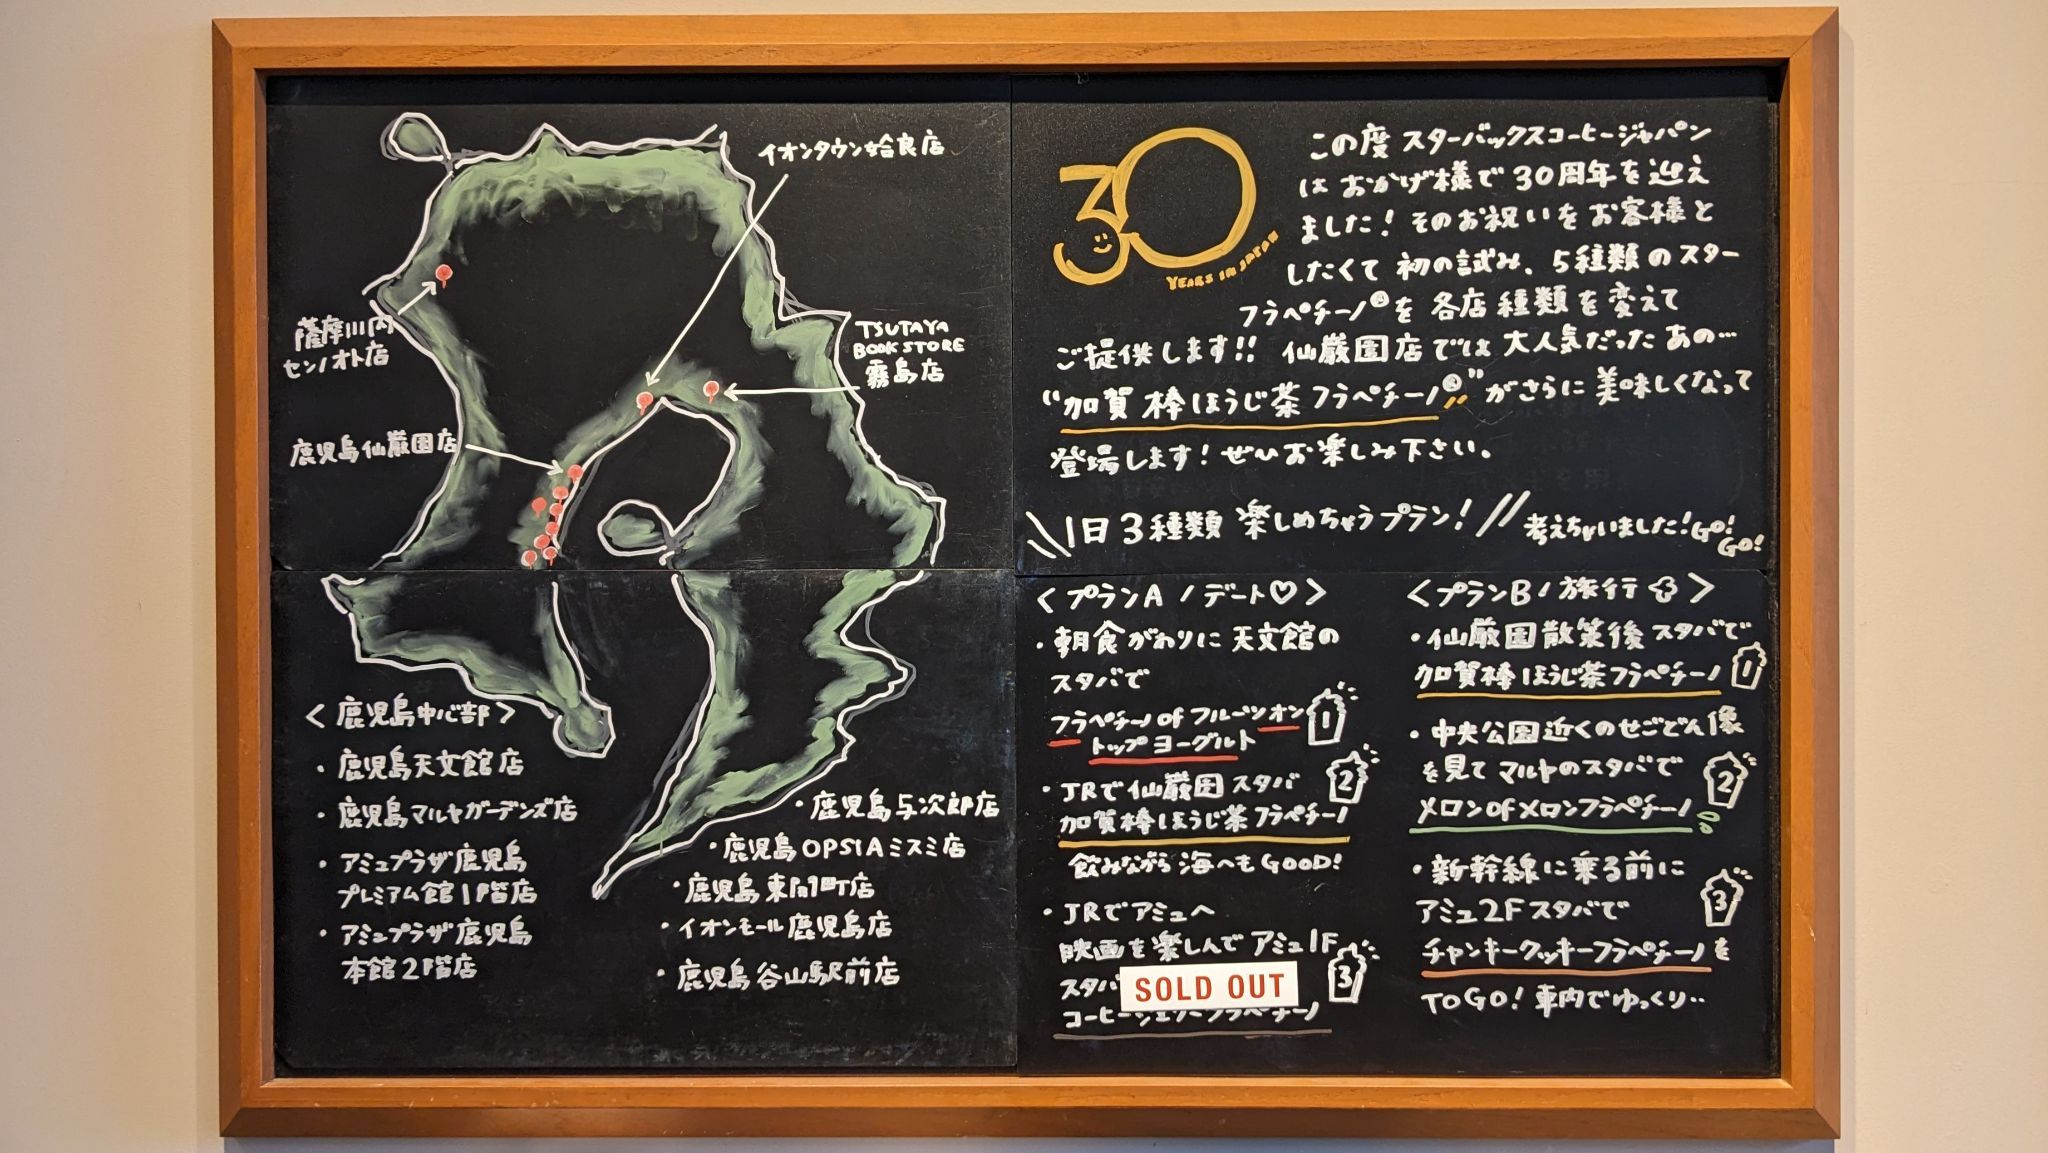 イオンタウン姶良店
薩摩川内
センノオト店
TSUTAYA
BOOK STORE
霧島店
鹿児島仙巌園店
<鹿児島中心部>
・鹿児島天文館店
・鹿児島マルヤガーデンズ店
・アミュプラザ鹿児島
プレミアム館1階店
・アミュプラザ鹿児島
本館2階店
・鹿児島与次郎店
・鹿児島OPSIAミスミ店
・鹿児島東開町店
・イオンモール鹿児島店
・鹿児島谷山駅前店
30
YEARS IN JAPAN
この度スターバックスコーヒージャパン
はおかげ様で30周年を迎え
ました!そのお祝いをお客様と
したくて初の試み、5種類のスター
フラペチーノ®を各店種類を変えて
ご提供します!!仙巌園店では大人気だったあの…
"加賀棒ほうじ茶フラペチーノ®"がさらに美味しくなって
登場します!ぜひお楽しみ下さい。
\\1日3種類楽しめちゃうプラン!// 考えちゃいました!GO!GO!
<プランA/デート♡>
・朝食がわりに天文館の
スタバで
フラペチーノofフルーツオン
トップヨーグルト
1
・JRで仙巌園スタバ
2
加賀棒ほうじ茶フラペチーノ
飲みながら海へもGOOD!
・JRでアミュへ
映画を楽しんでアミュ1F
スタバ
3
SOLD OUT
コーヒージェリーフラペチーノ
<プランB/旅行>
・仙巌園散策後スタバで
加賀棒ほうじ茶フラペチーノ
1
・中央公園近くのせごどん像
を見てマルヤのスタバで
2
メロンofメロンフラペチーノ
・新幹線に乗る前に
アミュ2Fスタバで
3
チャンキークッキーフラペチーノを
TO GO!車内でゆっくり‥